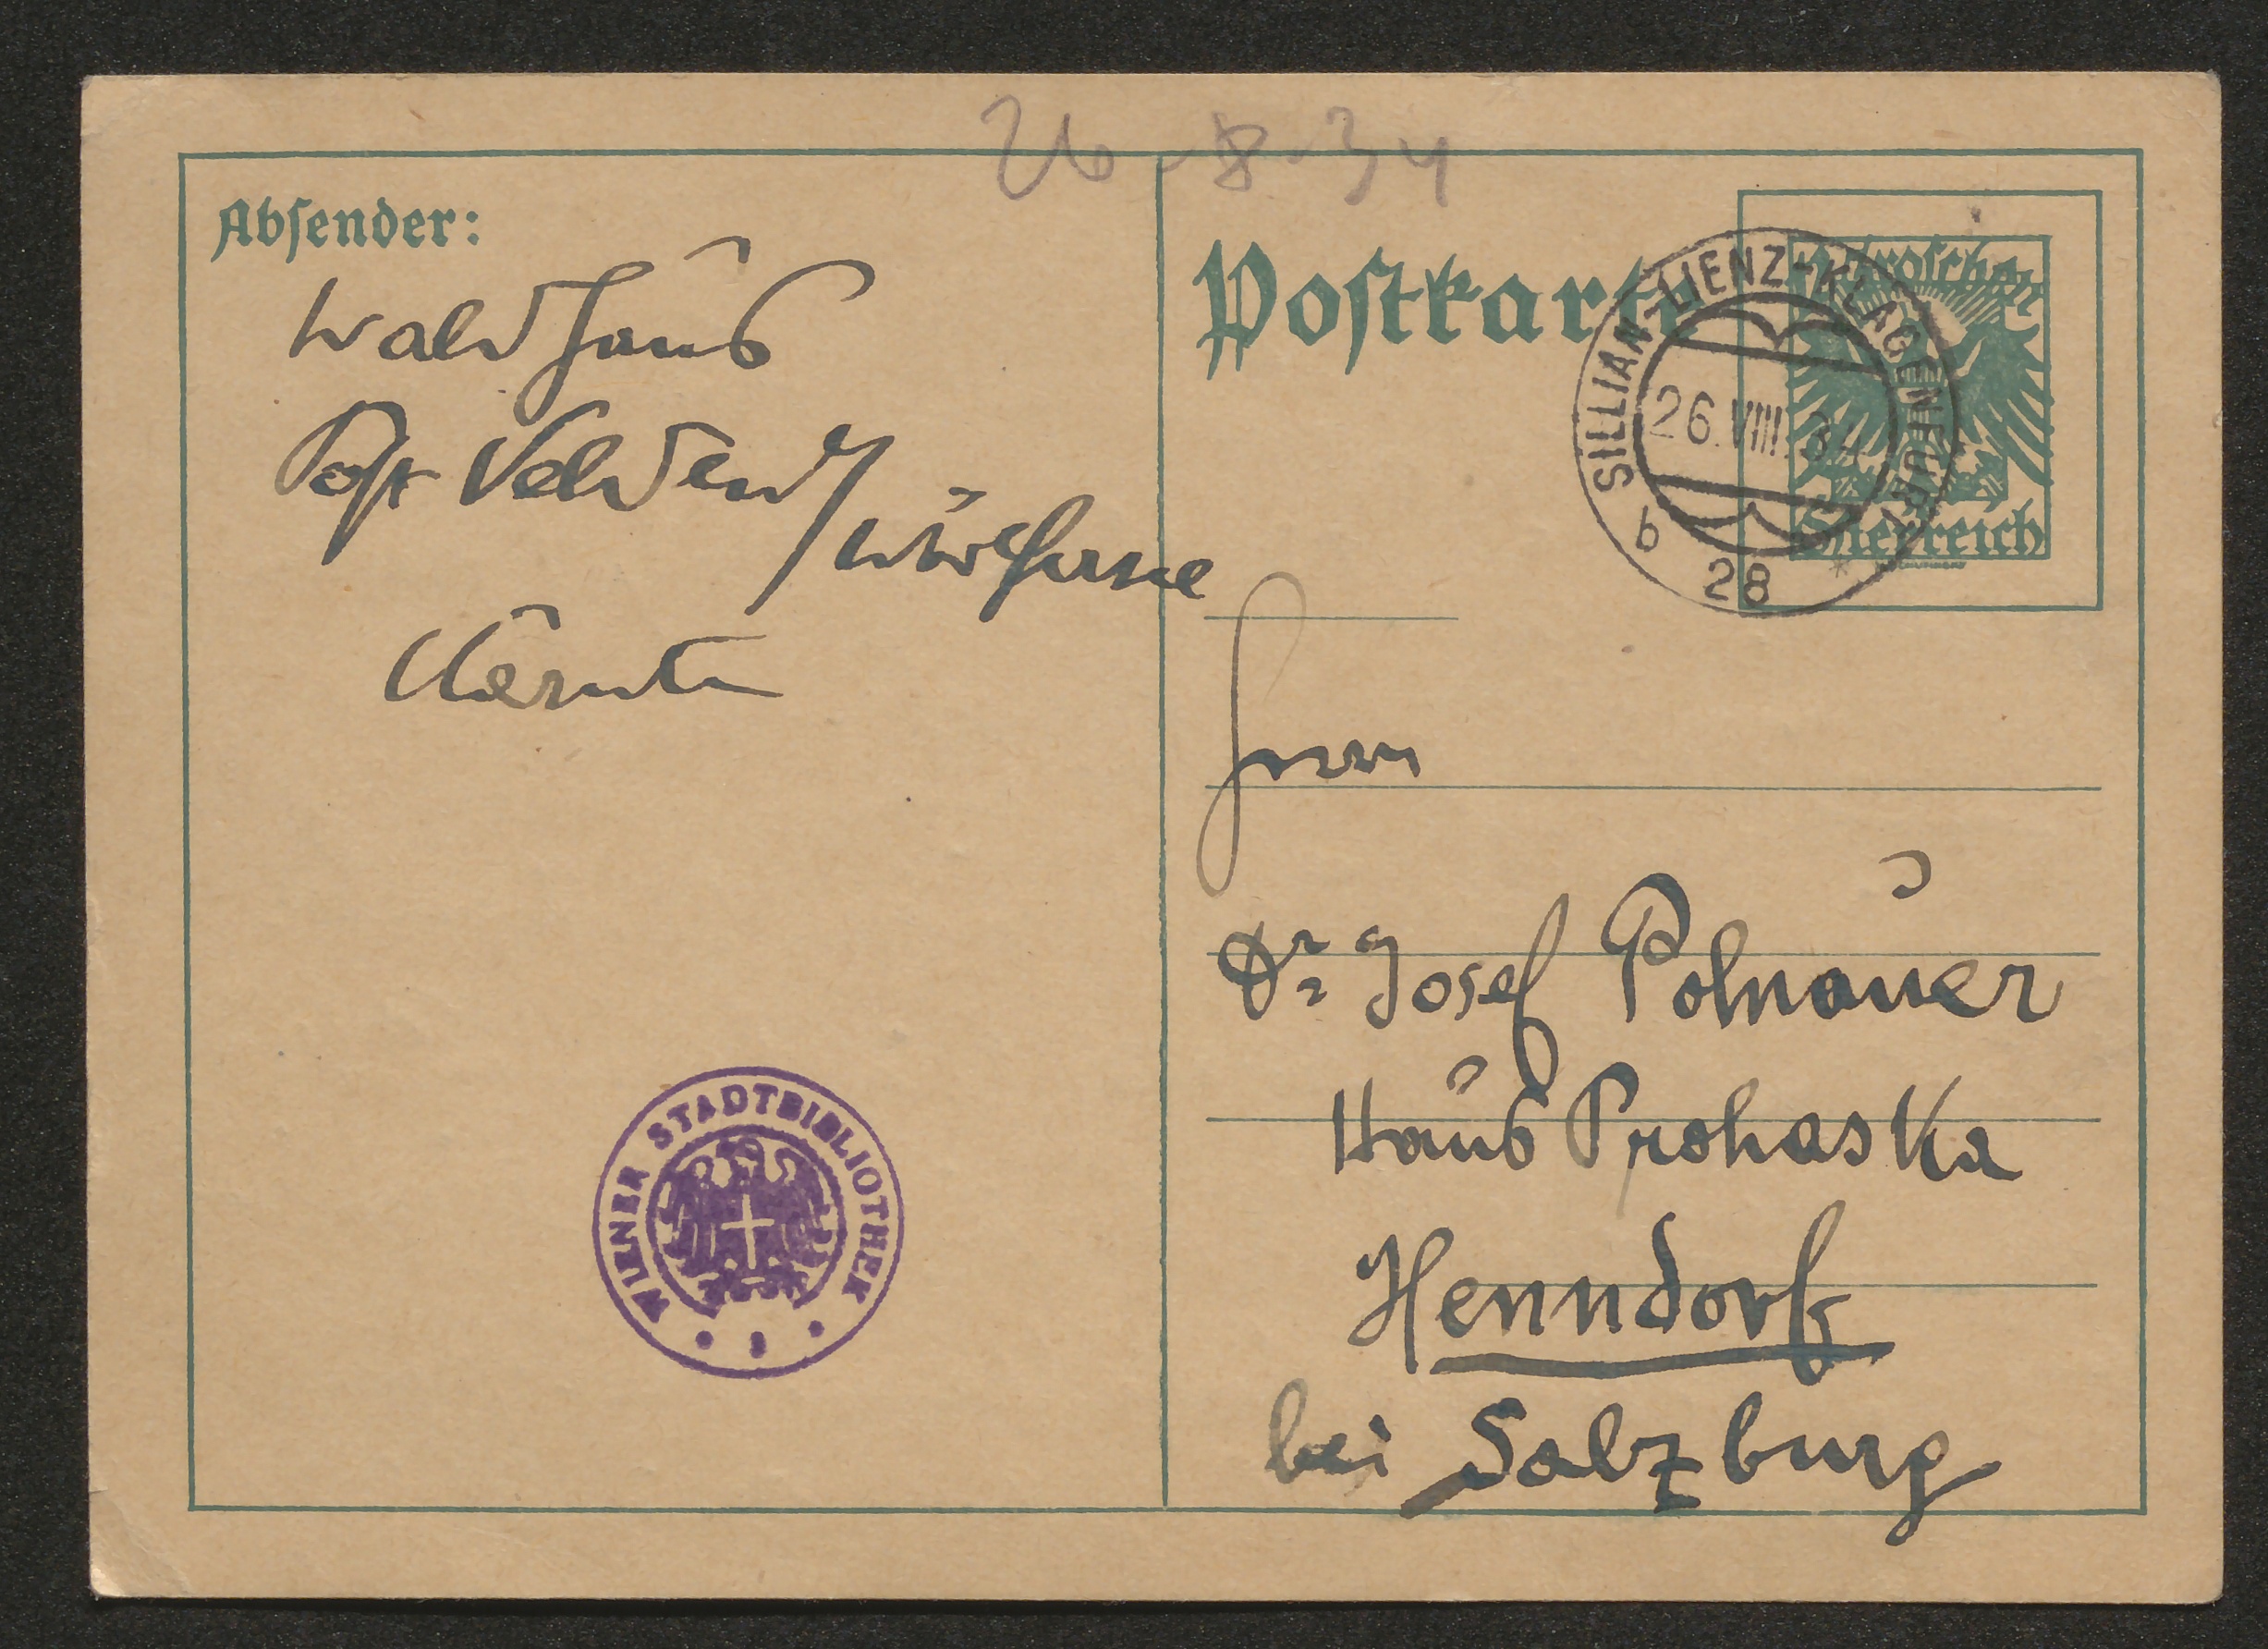 26-8-34
Absender:
Waldhaus
Post Velden a/
Wörthersee
Kärnten
Postkarte
SILLIAN-LIENZ-KLAGENFURT
26.VIII.34
b
28
Groschen
Österreich
Herrn
Dr. Josef Polnauer
Haus Prohaska
Henndorf
bei Salzburg
WIENER STADTBIBLIOTHEK